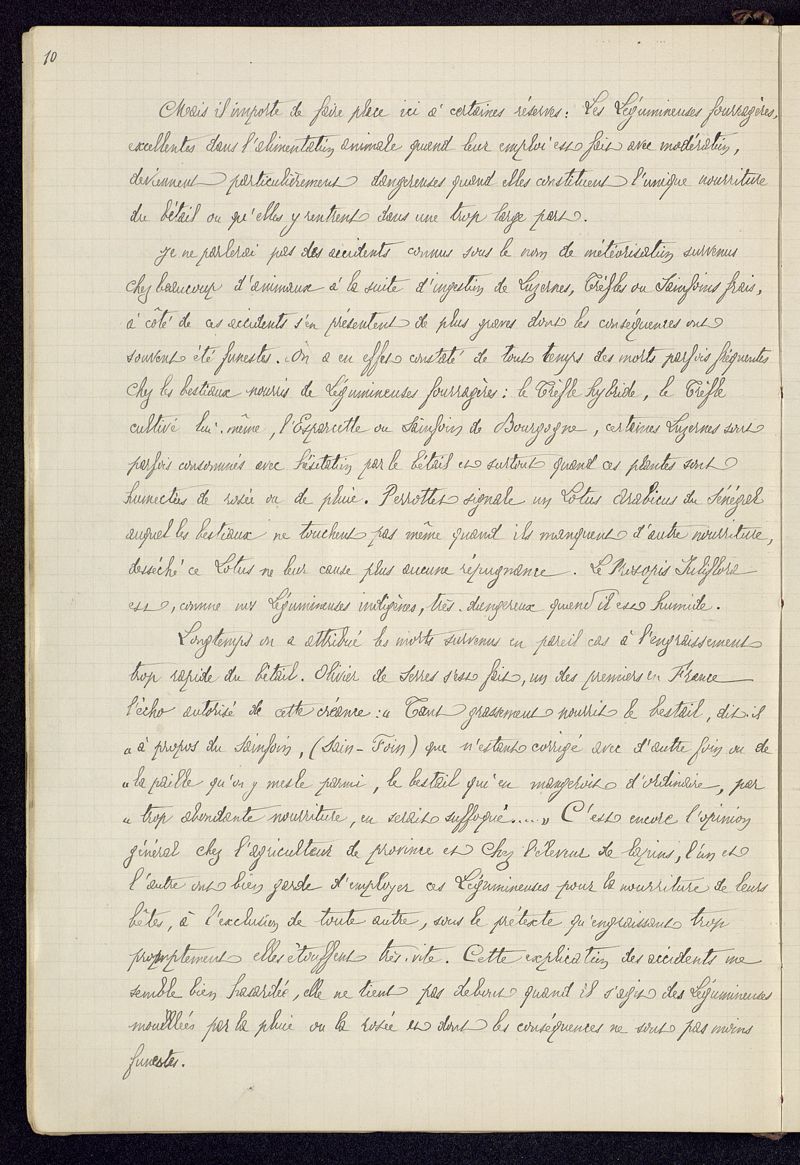 10
Mais il importe de faire place ici à certaines réserves : Les Légumineuses fourragères,
excellentes dans l'alimentation animale quand leur emploi est fait avec modération,
deviennent particulièrement dangereuses quand elles constituent l'unique nourriture
du bétail ou qu'elles y rentrent dans une trop large part.
Je ne parlerai pas des accidents connus sous le nom de météorisation survenus
chez beaucoup d'animaux à la suite d'ingestion de Luzernes, Trèfles ou Sainfoins frais,
à côté de ces accidents s'en présentent de plus graves dont les conséquences ont
souvent été funestes. On a en effet constaté de tout temps des morts parfois fréquentes
chez les bestiaux nourris de Légumineuses fourragères : le Trèfle hybride, le Trèfle
cultivé lui-même, l'Esparcette ou Sainfoin de Bourgogne, certaines Luzernes sont
parfois consommés avec hésitation par le bétail et surtout quand ces plantes sont
humectées de rosée ou de pluie. Perrottet signale un Lotus arabicus du Sénégal
auquel les bestiaux ne touchent pas même quand ils manquent d'autre nourriture,
desséché ce Lotus ne leur cause plus aucune répugnance. Le Prosopis Juliflora
est, comme nos Légumineuses indigènes, très dangereux quand il est humide.
Longtemps on a attribué les morts survenus en pareil cas à l'engraissement
trop rapide du bétail. Olivier de Serres s'est fait, un des premiers en France
l'écho autorisé de cette créance : « Tant grassement nourrit le bestail, dit-il
« à propos du Sainfoin, (Sain-Foin) que n'estant corrigé avec d'autre foin ou de
« la paille qu'on y mesle parmi, le bestail qui en mangeroit d'ordinaire, par
« trop abondante nourriture, en serait suffoqué..... » C'est encore l'opinion
général chez l'agriculteur de province et chez l'éleveur de lapins, l'un et
l'autre ont bien garde d'employer ces Légumineuses pour la nourriture de leurs
bêtes, à l'exclusion de toute autre, sous le prétexte qu'engraissant trop
promptement elles étouffent très vite. Cette explication des accidents me
semble bien hasardée, elle ne tient pas debout quand il s'agit des Légumineuses
mouillées par la pluie ou la rosée et dont les conséquences ne sont pas moins
funestes.